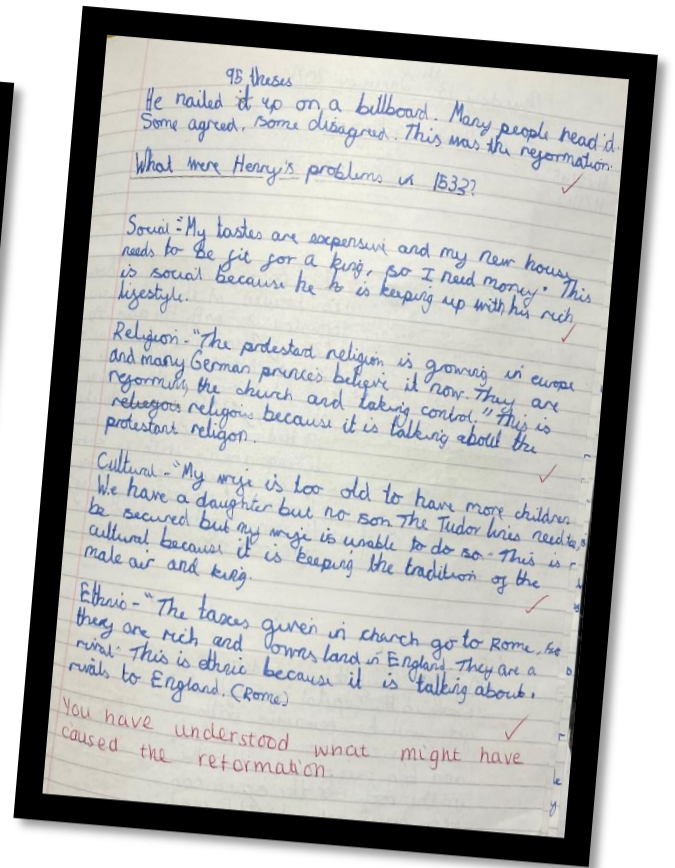 95 theses
He nailed it up on a billboard. Many people read it.
Some agreed, some disagreed. This was the reformation.
What were Henry's problems in 1533?
Social - "My tastes are expensive and my new house
needs to be fit for a king, so I need money." This
is social because he is keeping up with his rich
lifestyle.
Religion - "The protestant religion is growing in europe
and many German princes believe it now. They are
reforming the church and taking control." This is
religois because it is talking about the
protestant religon.
Cultural - "My wife is too old to have more children.
We have a daughter but no son. The Tudor lines need to
be secured but my wife is unable to do so." This is
cultural because it is keeping the tradition of the
male air and king.
Ethnic - "The taxes given in church go to Rome, so
they are rich and owns land in England. They are a
rival." This is ethnic because it is talking about
rivals to England. (Rome)
You have understood what might have
caused the reformation.